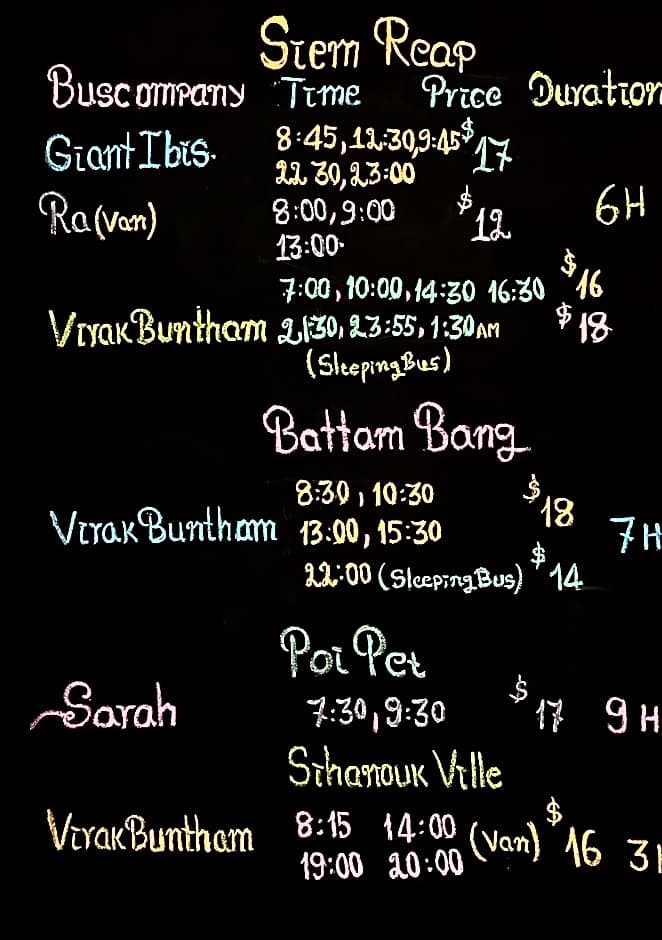 Siem Reap
Buscompany Time Price Duration
Giant Ibis. 8:45, 12:30, 9:45 $17
22 30, 23:00
Ra (Van) 8:00, 9:00 $12 6H
13:00
7:00, 10:00, 14:30 16:30 $16
Virak Buntham 21:30, 23:55, 1:30 AM $18
(Sleeping Bus)
Battam Bang
8:30, 10:30 $18
Virak Buntham 13:00, 15:30 7H
22:00 (Sleeping Bus) $14
Poi Pet
Sarah 7:30, 9:30 $17 9H
Sihanouk Ville
Virak Buntham 8:15 14:00 (Van) $16 3H
19:00 20:00